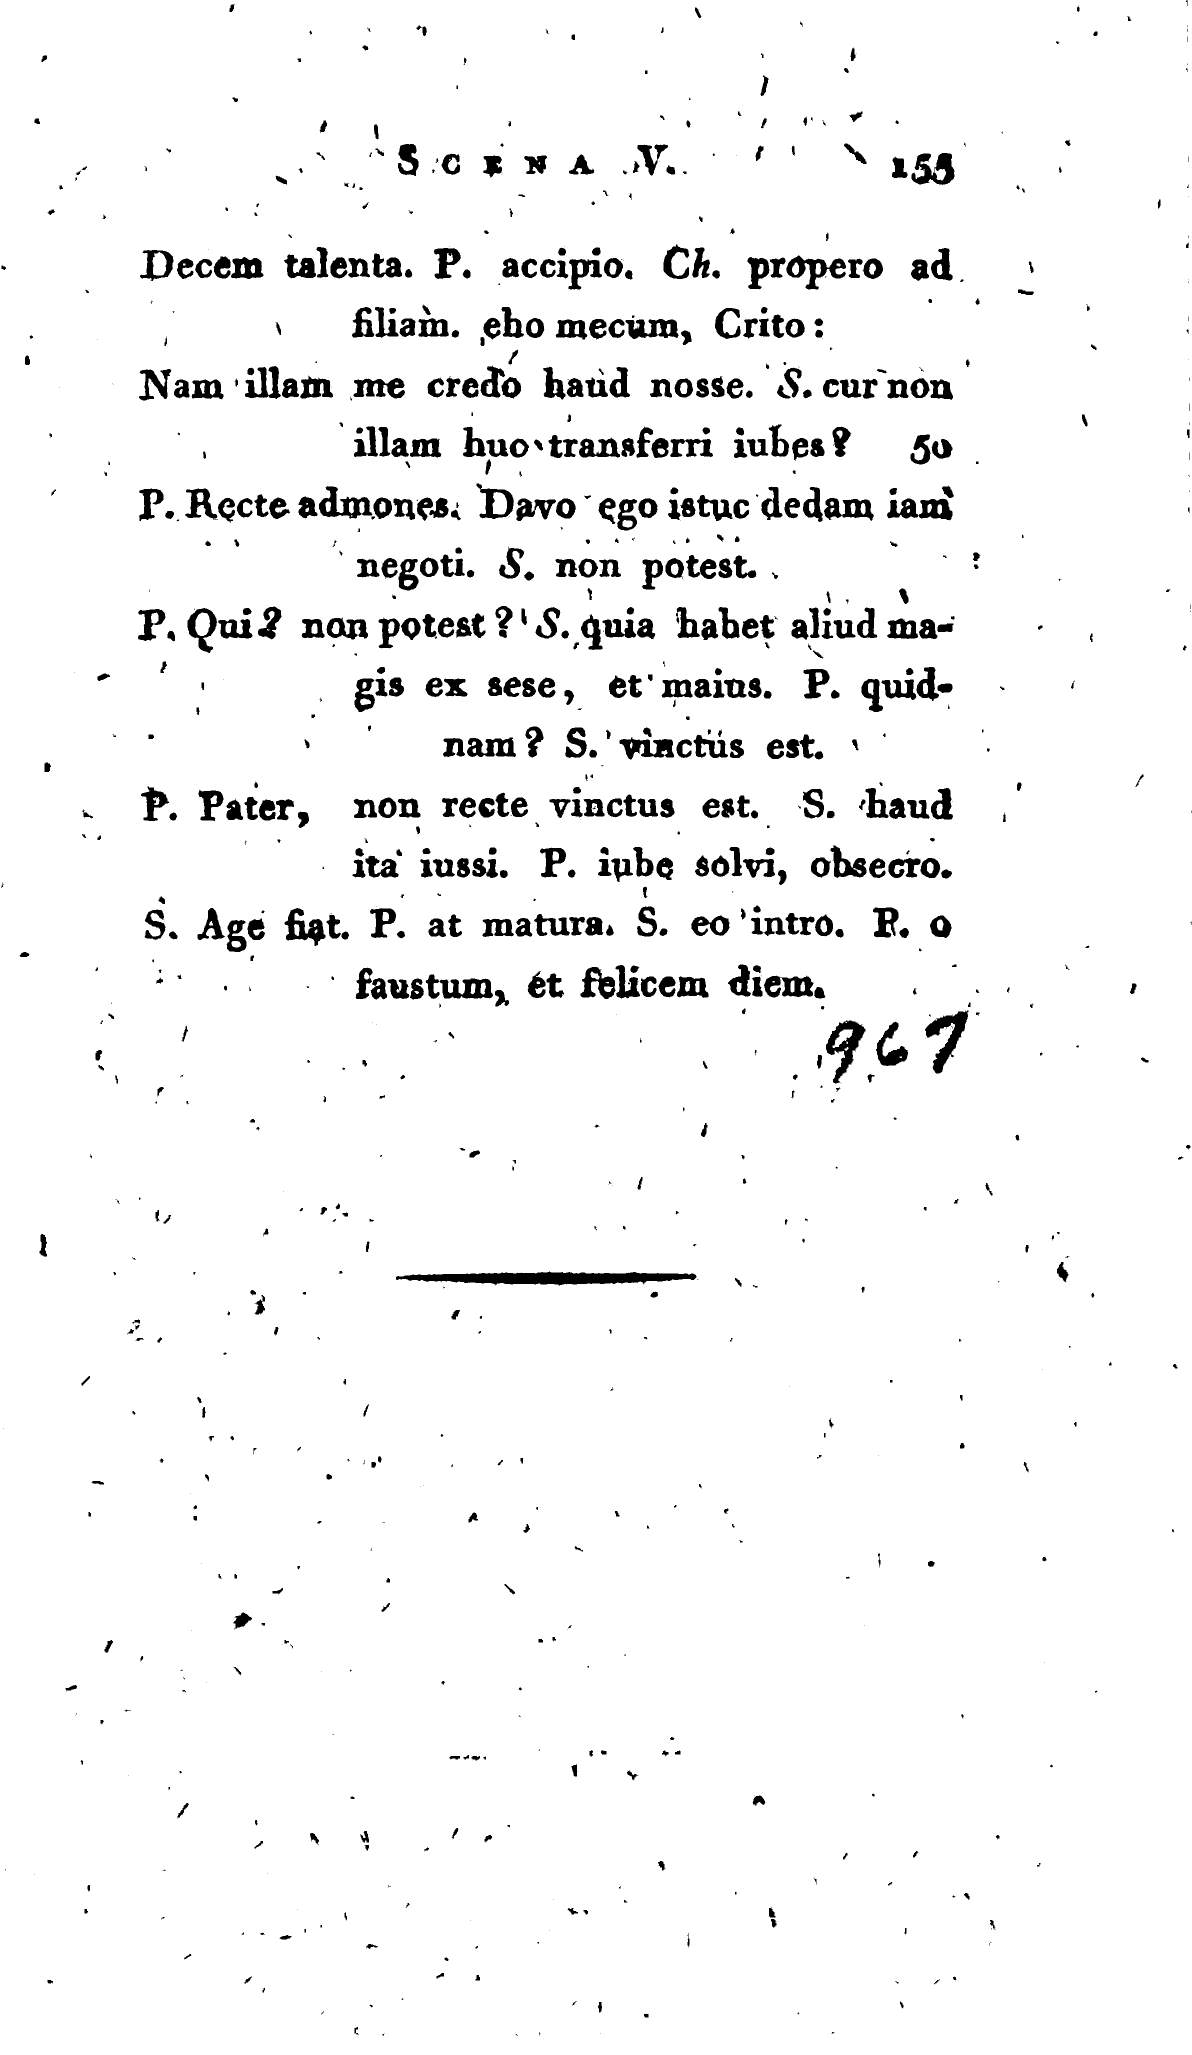 SCENA V. 155
Decem talenta. P. accipio. Ch. propero ad
filiam. eho mecum, Crito:
Nam illam me credo haud nosse. S. cur non
illam huc transferri iubes? 50
P. Recte admones. Davo ego istuc dedam iam
negoti. S. non potest.
P. Qui? non potest? S. quia habet aliud ma-
gis ex sese, et maius. P. quid-
nam? S. vinctus est.
P. Pater, non recte vinctus est. S. haud
ita iussi. P. iube solvi, obsecro.
S. Age fiat. P. at matura. S. eo intro. P. o
faustum, et felicem diem.
967